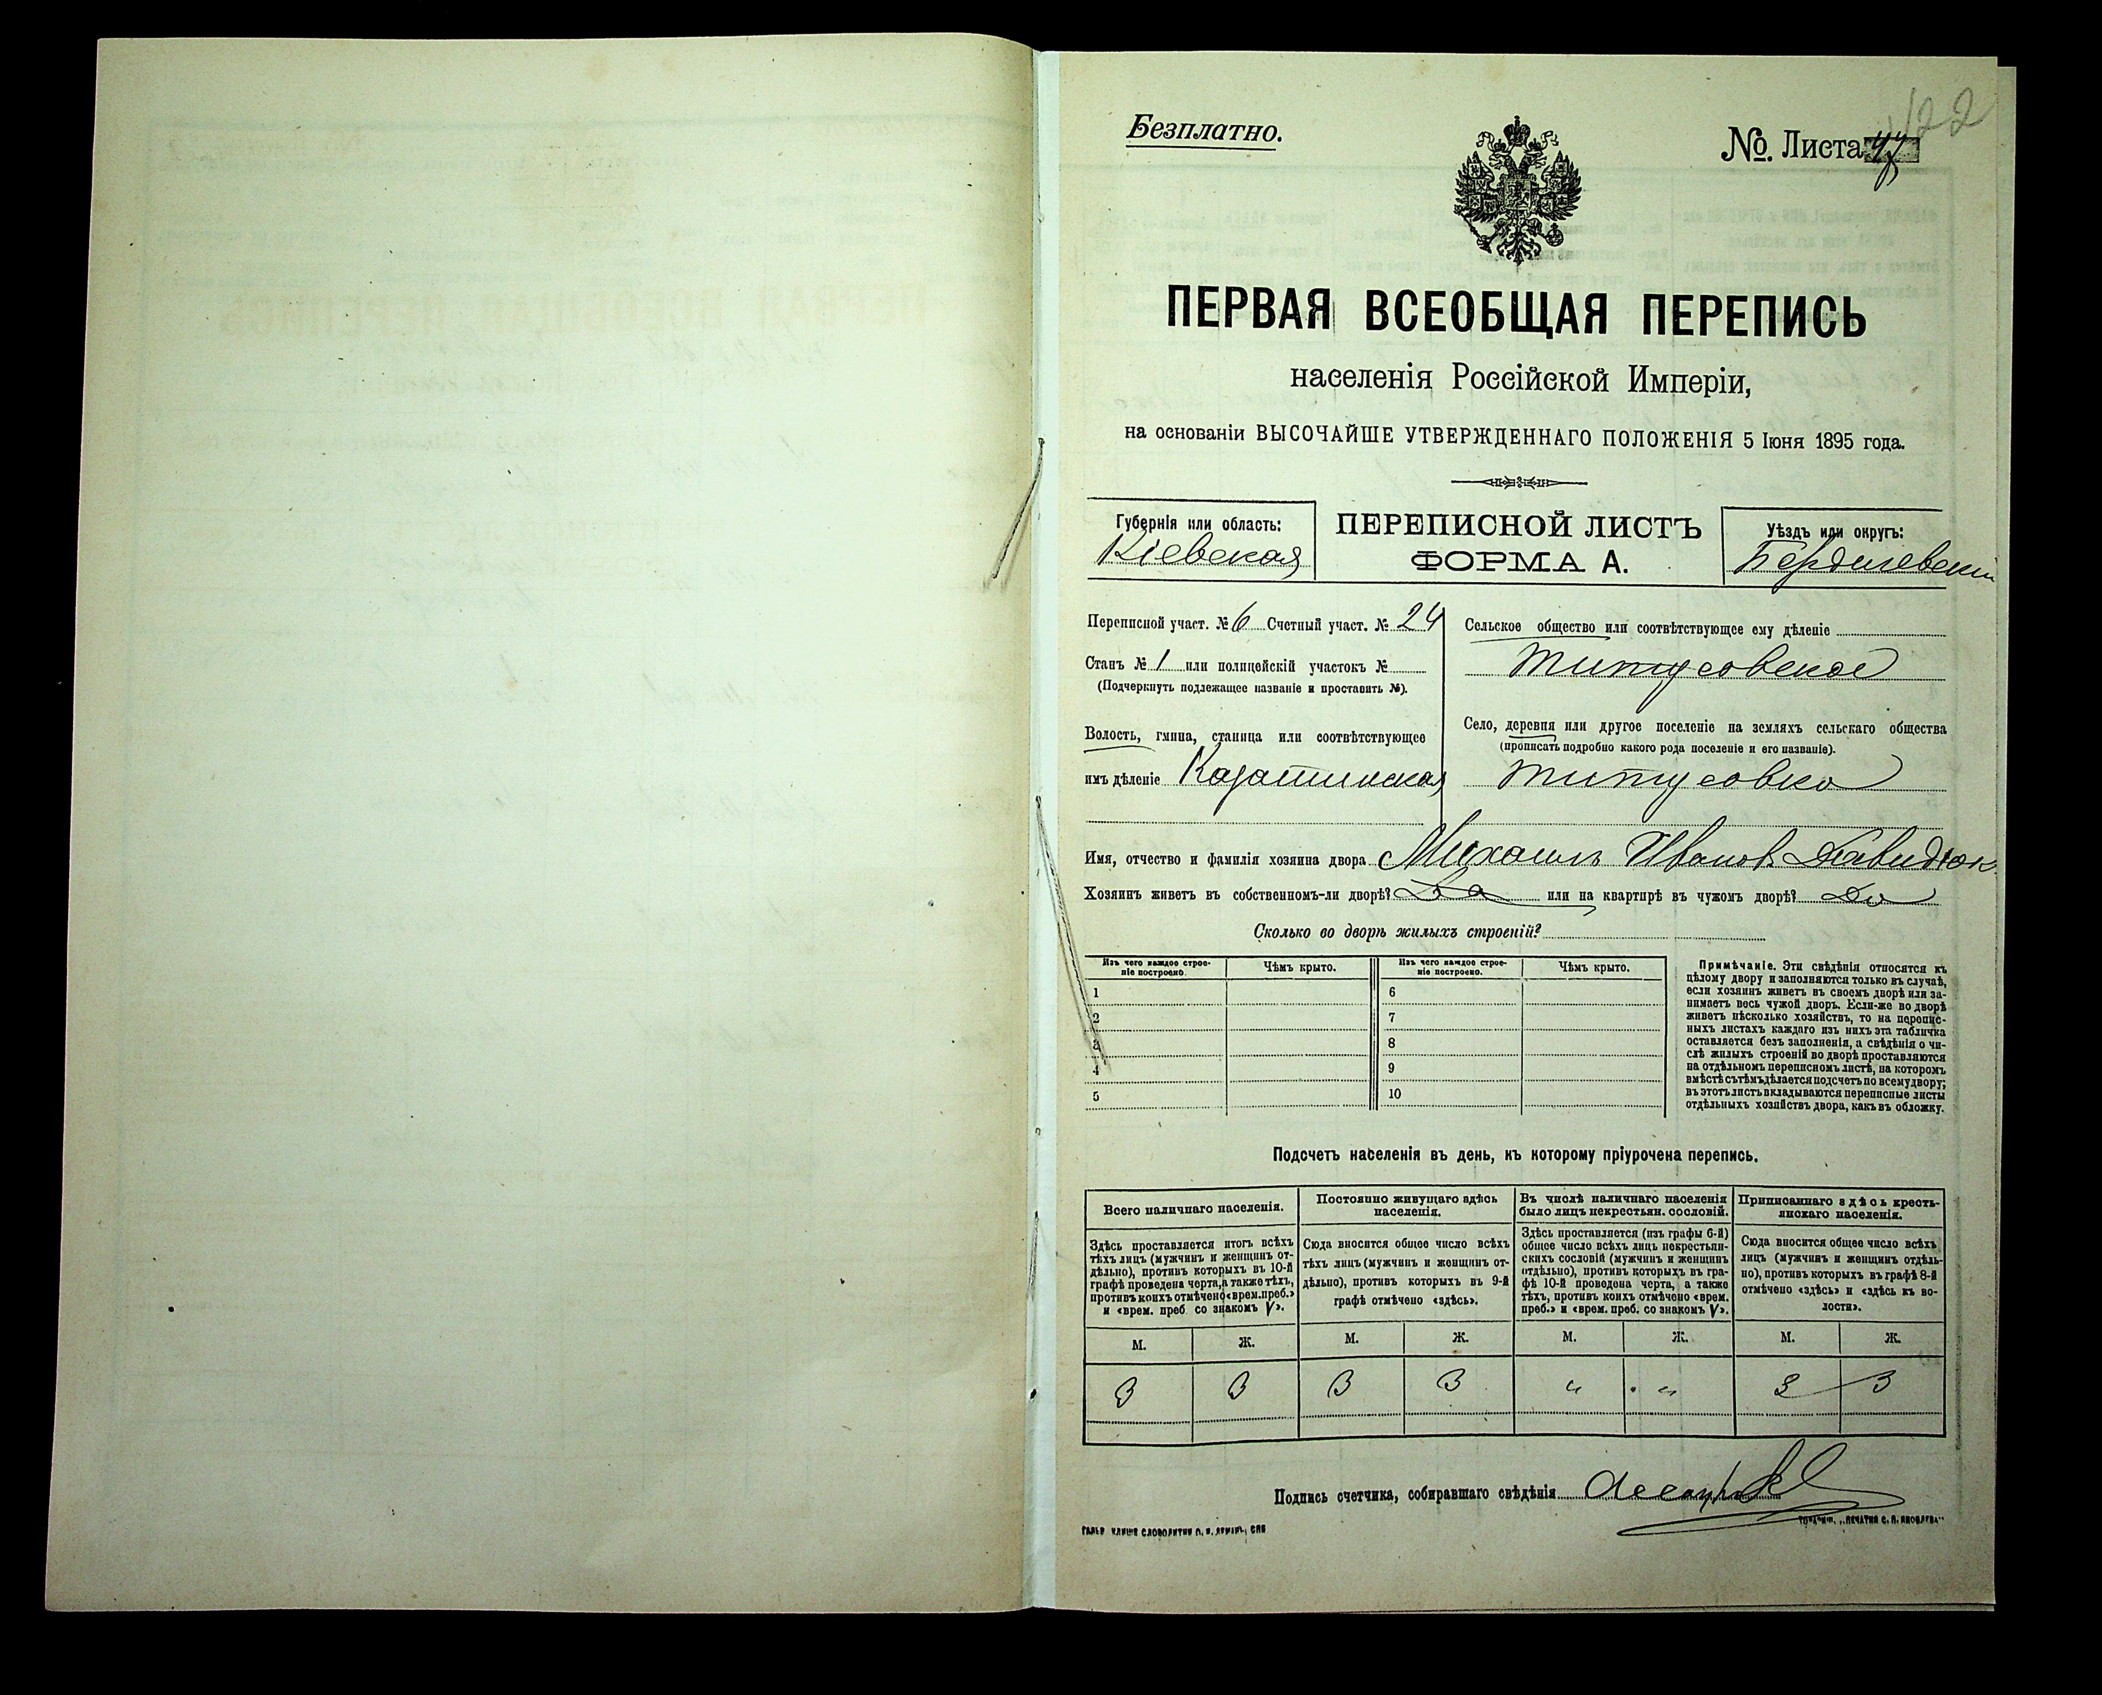 122
Безплатно.
№. Листа 47
ПЕРВАЯ ВСЕОБЩАЯ ПЕРЕПИСЬ
населенія Россійской Имперіи,
на основаніи ВЫСОЧАЙШЕ УТВЕРЖДЕННАГО ПОЛОЖЕНІЯ 5 Іюня 1895 года.
Губернія или область:
Кіевская
ПЕРЕПИСНОЙ ЛИСТЪ
ФОРМА А.
Уѣздъ или округъ:
Бердичевскій
Переписной участ. № 6 Счетный участ. № 24
Станъ № 1 или полицейскій участокъ №
(Подчеркнуть подлежащее названіе и проставить №).
Волость, гмина, станица или соотвѣтствующее
имъ дѣленіе Казатинская
Сельское общество или соотвѣтствующее ему дѣленіе
Титусовское
Село, деревня или другое поселеніе на земляхъ сельскаго общества
(прописать подробно какого рода поселеніе и его названіе).
Титусовка
Имя, отчество и фамилія хозяина двора Михаилъ Иванов. Давидюк
Хозяинъ живетъ въ собственномъ-ли дворѣ? Да или на квартирѣ въ чужомъ дворѣ? Да
Сколько во дворѣ жилыхъ строеній?
Изъ чего каждое строе-
ніе построено.
Чѣмъ крыто.
Изъ чего каждое строе-
ніе построено.
Чѣмъ крыто.
1 6
2 7
3 8
4 9
5 10
Примѣчаніе. Эти свѣдѣнія относятся къ
цѣлому двору и заполняются только въ случаѣ,
если хозяинъ живетъ въ своемъ дворѣ или за-
нимаетъ весь чужой дворъ. Если-же во дворѣ
живетъ нѣсколько хозяйствъ, то на перепис-
ныхъ листахъ каждаго изъ нихъ эта табличка
оставляется безъ заполненія, а свѣдѣнія о чи-
слѣ жилыхъ строеній во дворѣ проставляются
на отдѣльномъ переписномъ листѣ, на которомъ
вмѣстѣ съ тѣмъ дѣлается подсчетъ по всему двору;
въ этотъ листъ вкладываются переписные листы
отдѣльныхъ хозяйствъ двора, какъ въ обложку.
Подсчетъ населенія въ день, къ которому пріурочена перепись.
Всего наличнаго населенія.
Здѣсь проставляется итогъ всѣхъ
тѣхъ лицъ (мужчинъ и женщинъ от-
дѣльно), противъ которыхъ въ 10-й
графѣ проведена черта, а также тѣхъ,
противъ коихъ отмѣчено «врем. преб.»
и «врем. преб. со знакомъ V».
Постоянно живущаго здѣсь
населенія.
Сюда вносится общее число всѣхъ
тѣхъ лицъ (мужчинъ и женщинъ от-
дѣльно), противъ которыхъ въ 9-й
графѣ отмѣчено «здѣсь».
Въ числѣ наличнаго населенія
было лицъ некрестьян. сословій.
Здѣсь проставляется (изъ графы 6-й)
общее число всѣхъ лицъ некрестьян-
скихъ сословій (мужчинъ и женщинъ
отдѣльно), противъ которыхъ въ гра-
фѣ 10-й проведена черта, а также
тѣхъ, противъ коихъ отмѣчено «врем.
преб.» и «врем. преб. со знакомъ V».
Приписаннаго здѣсь кресть-
янскаго населенія.
Сюда вносится общее число всѣхъ
лицъ (мужчинъ и женщинъ отдѣль-
но), противъ которыхъ въ графѣ 8-й
отмѣчено «здѣсь» и «здѣсь въ во-
лости».
М. Ж. М. Ж. М. Ж. М. Ж.
3 3 3 3 " " 3 3
Подпись счетчика, собиравшаго свѣдѣнія